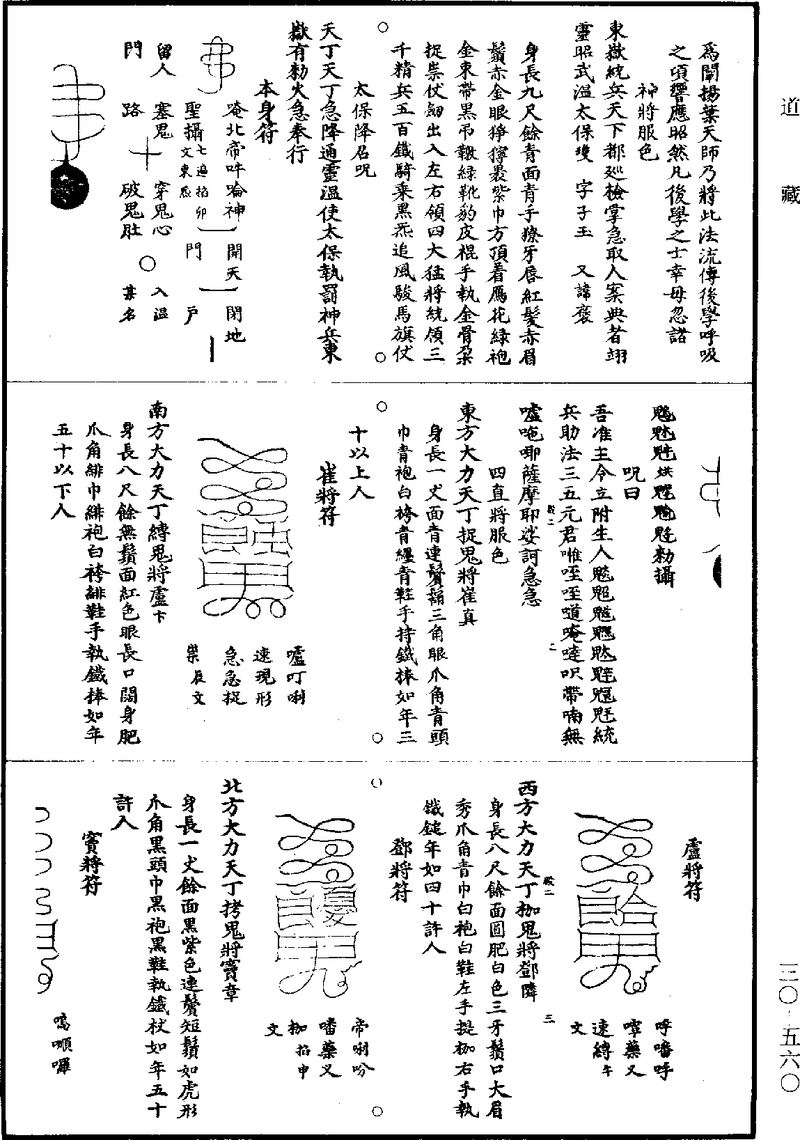 道藏
為闡揚葉天師乃將此法流傳後學呼吸
之頃響應昭然凡後學之士幸毋忽諸
神將服色
東嶽統兵天下都巡檢掌急取人案典者翊
靈昭武溫太保瓊 字子玉 又諱褒
身長九尺餘青面青手獠牙唇紅髮赤眉
鬚赤金眼猙獰裹紫巾方頂着鴈花綠袍
金束帶黑吊鞍綠靴豹皮裩手執金骨朵
捉祟仗劒出入左右領四大猛將統領三
千精兵五百鐵騎乘黑炁追風駿馬旗仗
太保降召呪
天丁天丁急降通靈溫使太保執罰神兵東
嶽有勑火急奉行
本身符
唵北帝吽唥神 開天 閉地
聖攝 七遍掐卯文東炁 門 戶
留人 塞鬼 穿鬼心 入溫
門 路 破鬼肚 某名
勑攝
呪曰
吾准主令立附生人 統
兵助法三五元君唯咥咥噵唵噠呎帶喃無
嚧咃唧薩摩耶娑訶急急
四直將服色
東方大力天丁捉鬼將崔真
身長一丈面青連鬢鬍三角眼爪角青頭
巾青袍白袴青纏青鞋手持鐵棒如年三
十以上人
崔將符
嚧叮唎
速現形
急急捉
祟辰文
南方大力天丁縛鬼將盧卞
身長八尺餘無鬚面紅色眼長口闊身肥
爪角緋巾緋袍白袴緋鞋手執鐵棒如年
五十以下人
盧將符
呼嚕呼
嚀藥叉
速縛午
文
西方大力天丁枷鬼將鄧隣
身長八尺餘面圓肥白色三牙鬚口大眉
秀爪角青巾白袍白鞋左手提枷右手執
鐵鎚年如四十許人
鄧將符
帝唎吩
嘈藥叉
枷掐申
文
北方大力天丁拷鬼將竇章
身長一丈餘面黑紫色連鬢短鬚如虎形
爪角黑頭巾黑袍黑鞋執鐵杖如年五十
許人
竇將符
嗚囕囉
三〇·五六〇